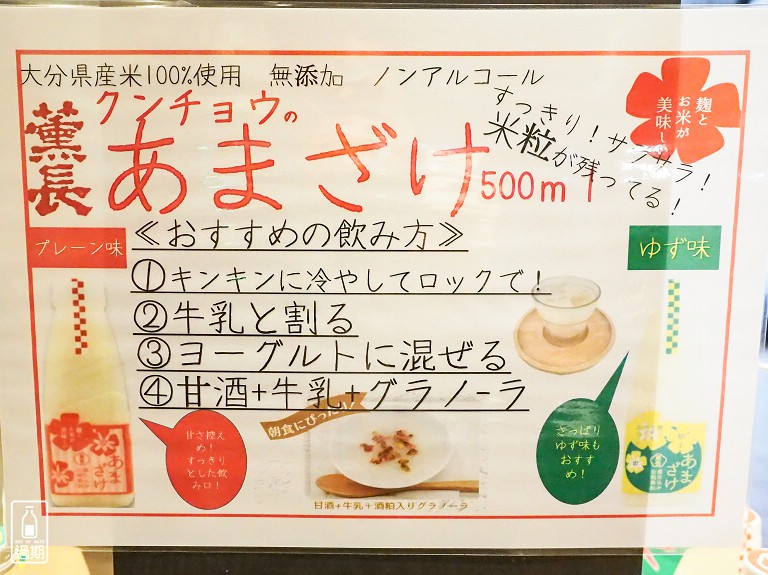 大分県産米100%使用　無添加　ノンアルコール
薫長
クンチョウの
あまざけ500ml
すっきり！サラサラ！
米粒が残ってる！
麹と
お米が
美味し
プレーン味
ゆず味
≪おすすめの飲み方≫
①キンキンに冷やしてロックで！
②牛乳と割る
③ヨーグルトに混ぜる
④甘酒+牛乳+グラノーラ
甘さ控え
め！
すっきり
とした飲
み口！
朝食にぴったり！
さっぱり
ゆず味も
おすす
め！
あま
ざけ
あま
ざけ
甘酒+牛乳+酒粕入りグラノーラ
過期